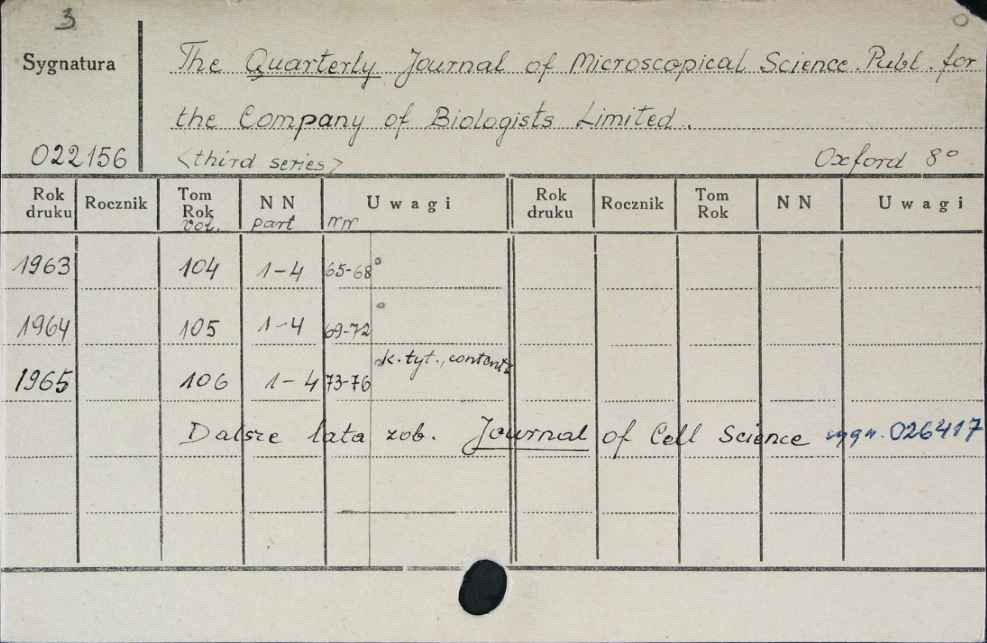 3
Sygnatura The Quarterly Journal of Microscopical Science. Publ. for
the Company of Biologists Limited.
022156 <third series> Oxford 8°
Rok druku Rocznik Tom Rok vol. NN part nr nr Uwagi Rok druku Rocznik Tom Rok NN Uwagi
1963 104 1-4 65-68 °
1964 105 1-4 69-72 °
1965 106 1-4 73-76 k. tyt., contents
Dalsze lata zob. Journal of Cell Science sygn. 026417